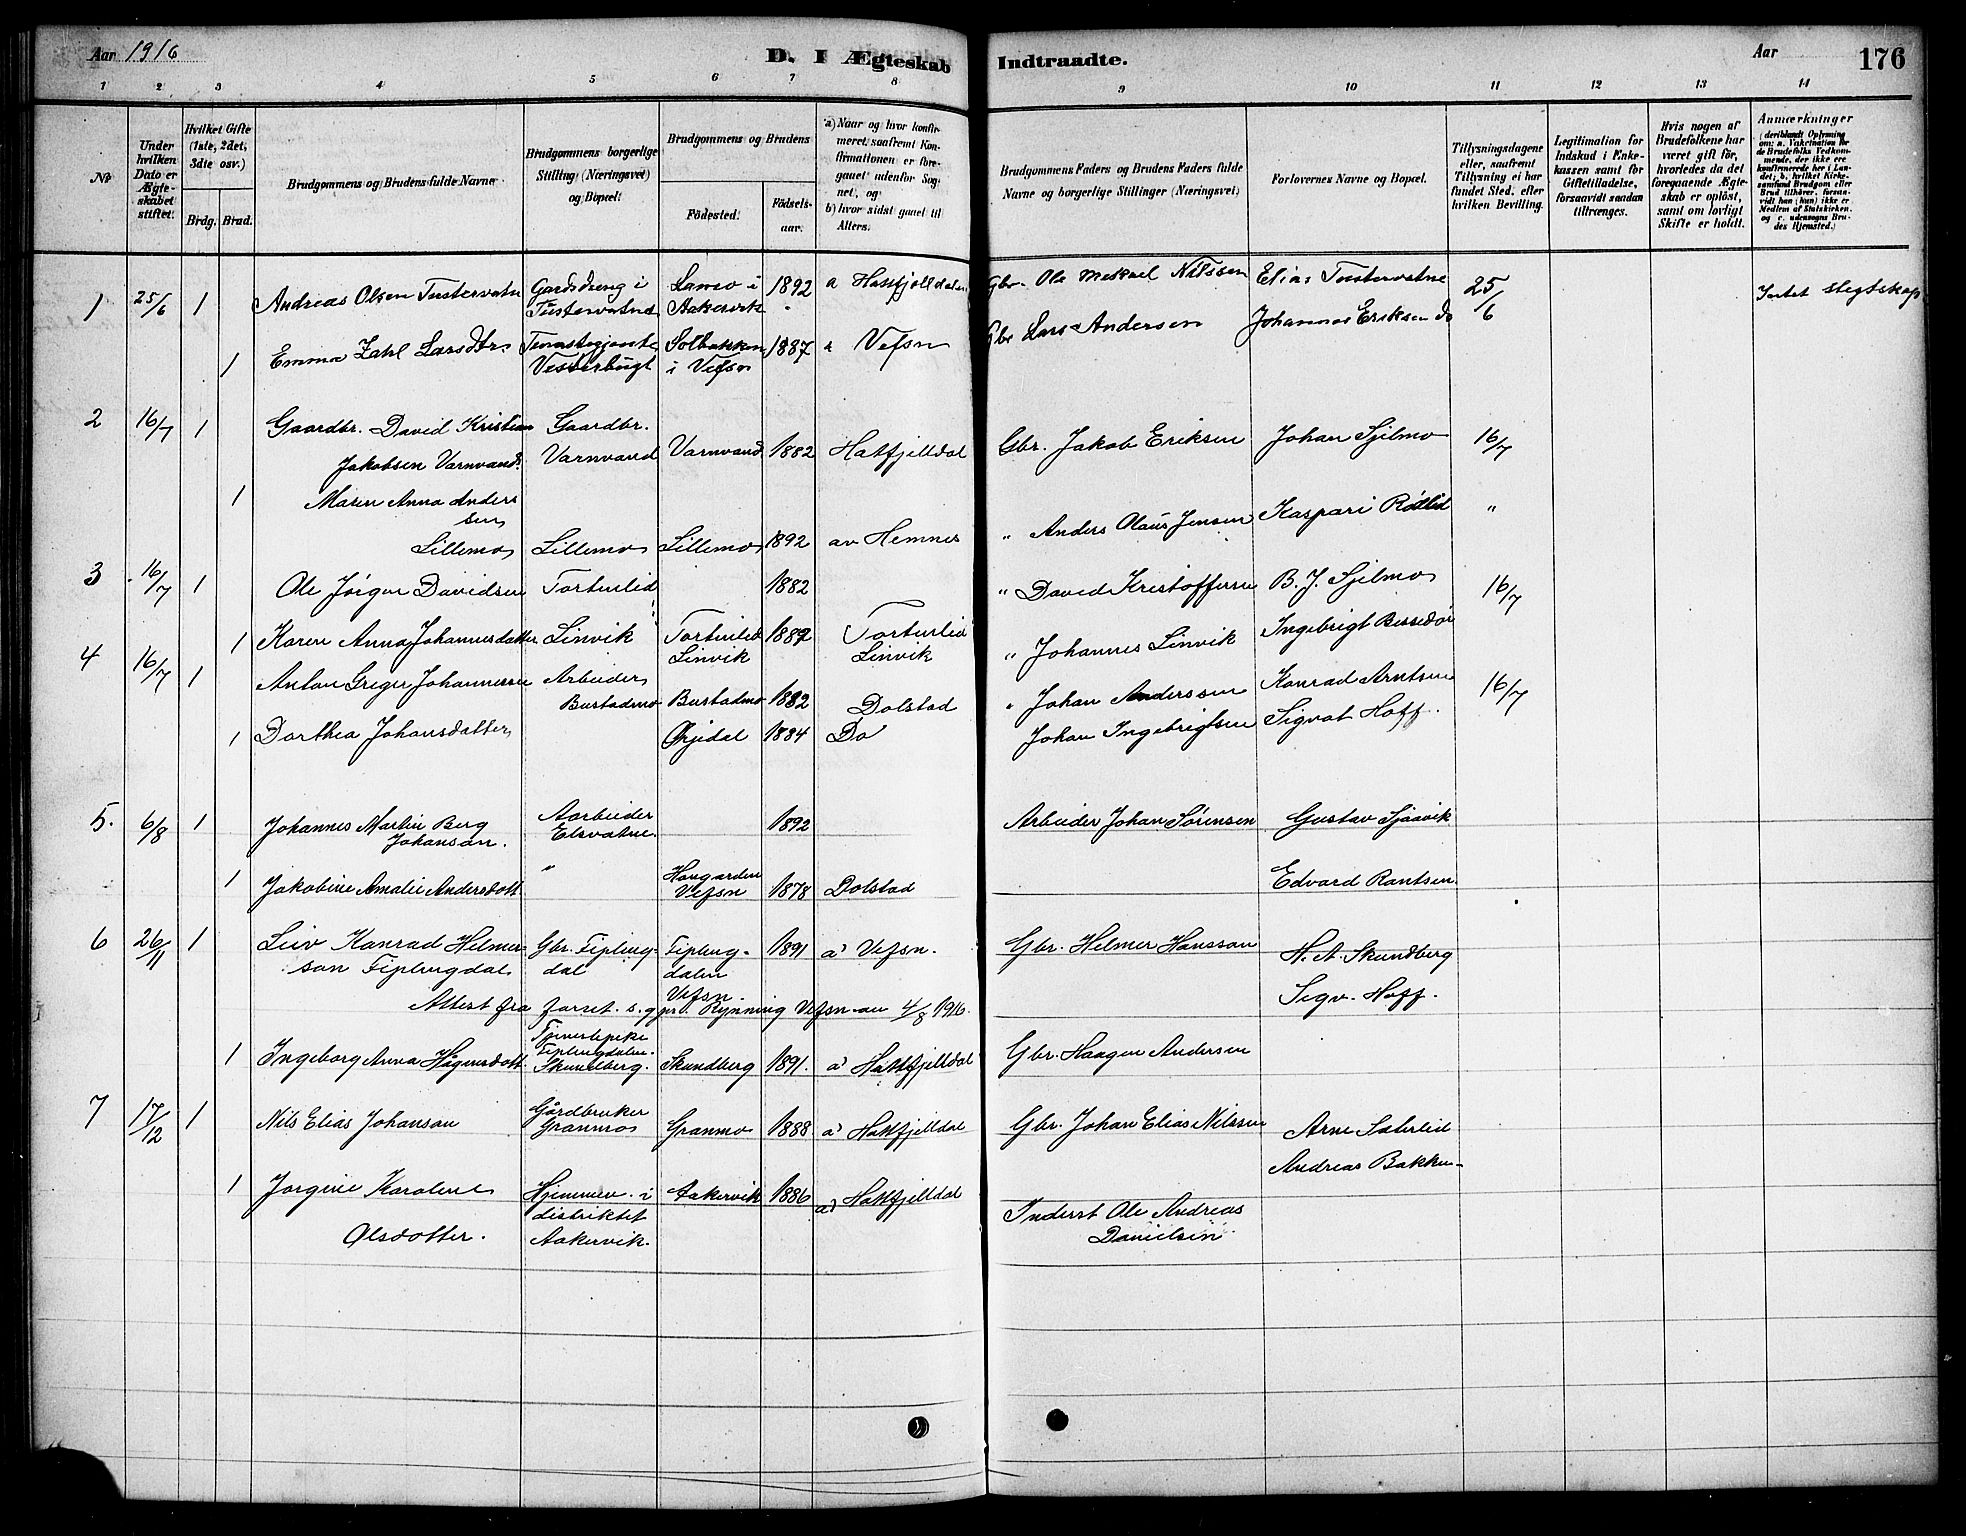 Aar 1916
D. I Ægteskab Indtraadte.
Aar
176
1 2 3 4 5 6 7 8 9 10 11 12 13 14
No
Under hvilken Dato er Ægteskabet stiftet.
Hvilket Gifte (1ste, 2det, 3die osv.)
Brdg. Brud.
Brudgommens og Brudens fulde Navne
Brudgommens borgerlige Stilling (Næringsvei) og Bopæl.
Brudgommens og Brudens
Födested. Födselsaar.
a) Naar og hvor konfirmeret, saafremt Konfirmationen er foregaaet udenfor Sognet, og
b) hvor sidst gaaet til Alters.
Brudgommens Faders og Brudens Faders fulde Navne og borgerlige Stillinger (Næringsvei)
Forlovernes Navne og Bopæl.
Tillysningsdagene eller, saafremt Tillysning ei har fundet Sted, efter hvilken Bevilling.
Legitimation for Indskud i Enkekassen samt for Giftetilladelse, forsaavidt saadan tiltrænges.
Hvis nogen af Brudefolkene har været gift för, hvorledes da det foregaaende Ægteskab er oplöst, samt om lovligt Skifte er holdt.
Anmærkninger
(deriblandt Oplysning om: a. Vakcination for de Brudefolks Vedkommende, der ikke ere konfirmerede her i Landet; b. hvilket Kirkesamfund Brudgom eller Brud tilhörer, forsaavidt han (hun) ikke er Medlem af Statskirken, og c. udensogns Brudes Hjemsted.)
1 25/6 1 Andreas Olsen Tustervatn Gardsdreng i Tustervatnet i Aakervik 1892 a Hatfjelldalen Gbr. Ole Mekael Nilssen Elias Tustervatne 25/6 slegtskap
1 Emma Zahl Larsdtr. Vesterbugt Solbakken i Vefsn 1887 a Vefsn Gbr Lars Andersen Johannes Eriksen do
2 16/7 1 Gaardbr. David Kristian Gaardbr.
Jakobsen Varnvand Varnvand Varnvand 1882 Hatfjelldal Gbr. Jakob Eriksen Johan Sjilmo 16/7
1 Maren Anna Anders
sen
Lillemo Lillemo Lillemo 1892 av Hemnes " Anders Olaus Jensen Kaspari Rödlid "
3 16/7 1 Ole Jörgen Davidsen Tortenlid 1882 " David Kristoffersen B. J. Sjilmo 16/7
1 Karen Anna Johannesdatter Linvik Tortenlid Linvik 1889 Tortenlid Linvik " Johannes Linvik Ingebrigt
4 16/7 1 Anton Greger Johannessen Arbeider Bustadmo Bustadmo 1882 Dolstad " Johan Anderssen Konrad Arntsen 16/7
1 Dorthea Johansdatter Öijedal 1884 Do Johan Ingebrigtsen Sigvat Hoff.
5. 6/8 1 Johannes Martin Berg Johanson. Aarbeider Elsvatne 1892 Arbeider Johan Sörensen Gustav Sjåavik
1 Jakobine Amalie Andersdott " Haugarden Vefsn 1878 Dolstad Edvard Rantsen
6 26/11 1 Leiv Konrad Helmerson Fiplingdal Gbr. Fiplingdal Fiplingdalen Vefsn. 1891 a) Vefsn. Gbr. Helmer Hansson H. A. Skundberg
Attest fra forret. s. g. pr. O. Rynning Vefsn av 4/8 1916. Sigv. Hoff.
1 Ingeborg Anna Hågensdott. Tjenestpike Fiplingdalen. Skundberg. Skundberg 1891. a) Hattfjelldal Gbr. Haagen Andersen
7 17/12 1 Nils Elias Johanson Gårdbruker Granmo Granmo 1888 a) Hattfjelldal Gbr. Johan Elias Nilssen Arne Säterlid
Andreas Bakken
1 Jorgine Karoline Olsdotter. Hjemmev. i distriktet Aakervik. Aakervik 1886 a) Hattfjelldal Inderst Ole Andreas Danielsen